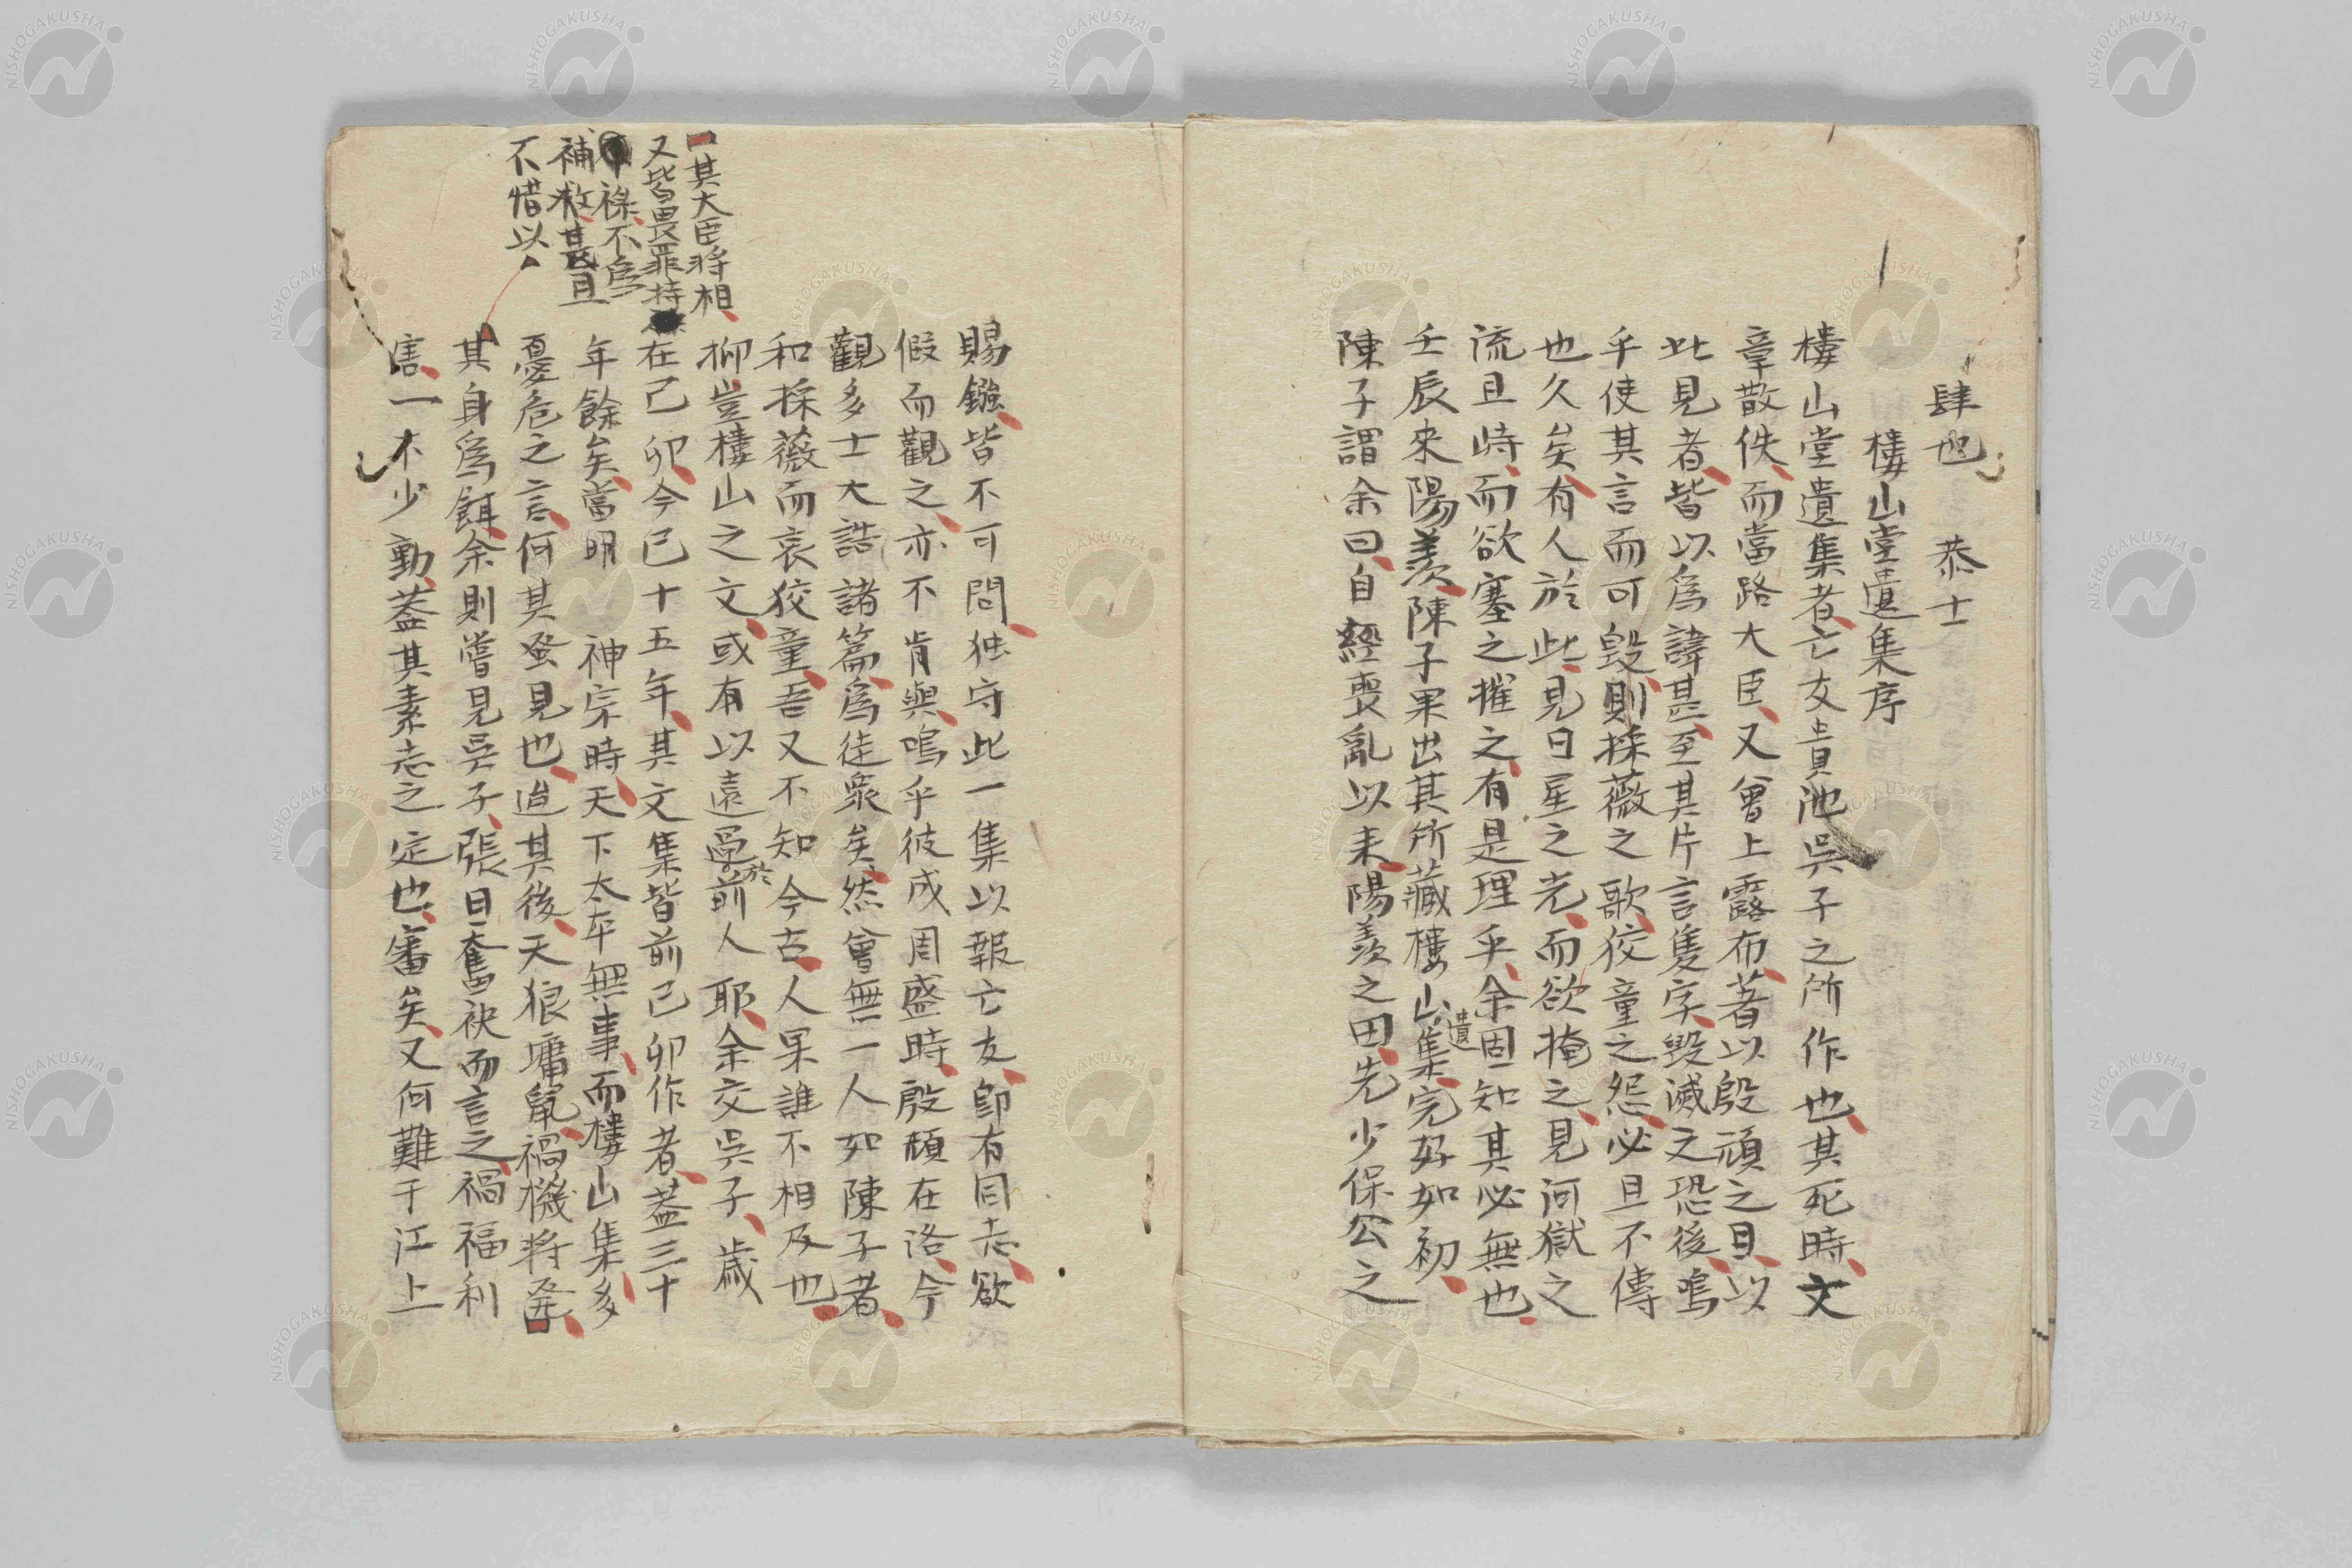 肆也　恭士
樓山堂遺集序
樓山堂遺集者亡友貴池吳子之所作也其死時文
章散佚而當路大臣又曾上露布著以殷頑之目以
此見者皆以爲諱甚至其片言隻字毀滅之恐後嗚
乎使其言而可毀則採薇之歌狡童之怨必且不傳
也久矣有人於此見日星之光而欲掩之見河嶽之
流且峙而欲塞之摧之有是理乎余固知其必無也
壬辰來陽羨陳子果出其所藏樓山遺集完好如初
陳子謂余曰自經喪亂以来陽羨之田先少保公之
賜鏹皆不可問独守此一集以報亡友卽有同志欲
假而觀之亦不肯與嗚乎彼成周盛時殷頑在洛今
觀多士大誥諸篇爲徒衆矣然曾無一人如陳子者
和採薇而哀狡童吾又不知今古人果誰不相及也
抑豈樓山之文或有以遠過於前人耶余交吳子歲
在己卯今已十五年其文集皆前己卯作者葢三十
年餘矣當明　神宗時天下太平無事而樓山集多
憂危之言何其蚤見也迨其後天狼墉鼠禍機将発
其大臣将相
又皆畏罪持
祿不爲
補救甚且
不惜以
其身爲餌余則嘗見吳子張目奮袂而言之禍福利
害一不少動葢其素志之定也審矣又何難于江上